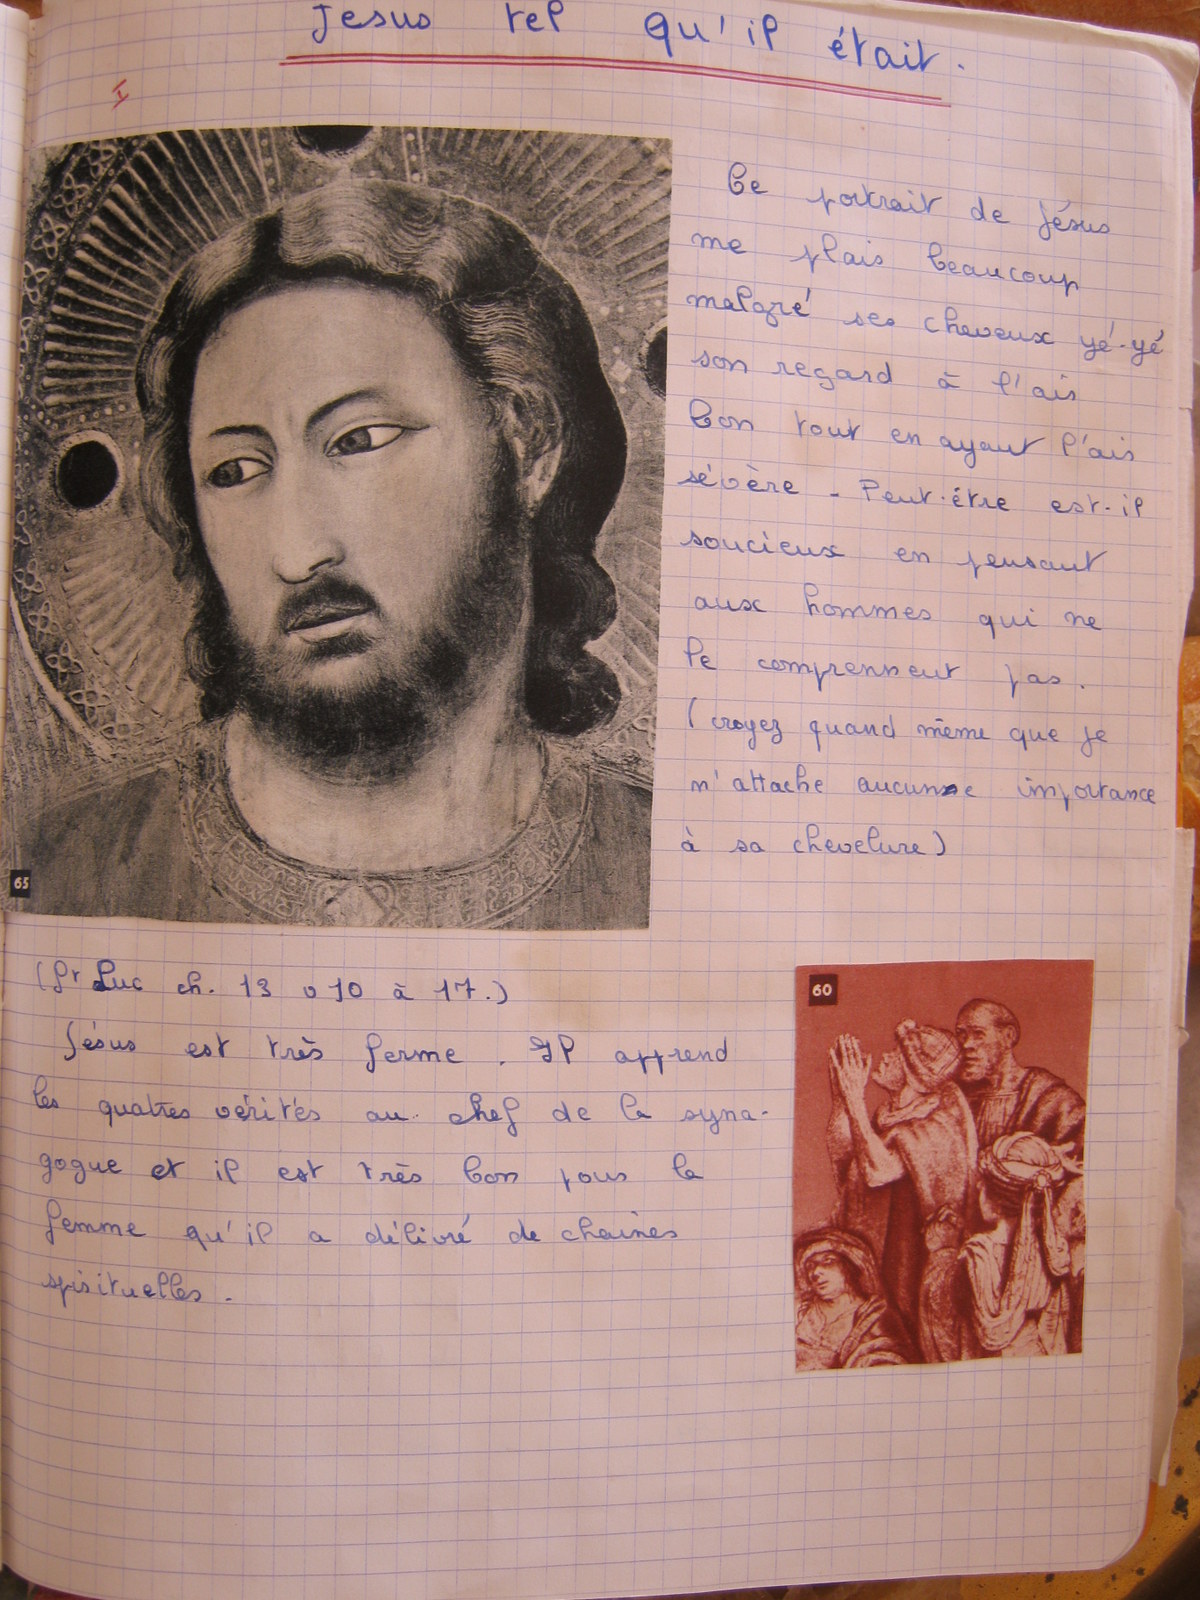 Jesus tel qu'il était.
I
Ce portrait de jésus
me plais beaucoup
malgré ses cheveux yé-yé
son regard à l'air
bon tout en ayant l'air
sévère - Peut-être est-il
soucieux en pensant
aux hommes qui ne
le comprennent pas.
(croyez quand même que je
n'attache aucune importance
à sa chevelure)
65
(St Luc ch. 13 v 10 à 17.)
Jésus est très ferme. Il apprend
les quatres vérités au chef de la syna-
gogue et il est très bon pour la
femme qu'il a délivré de chaînes
spirituelles.
60